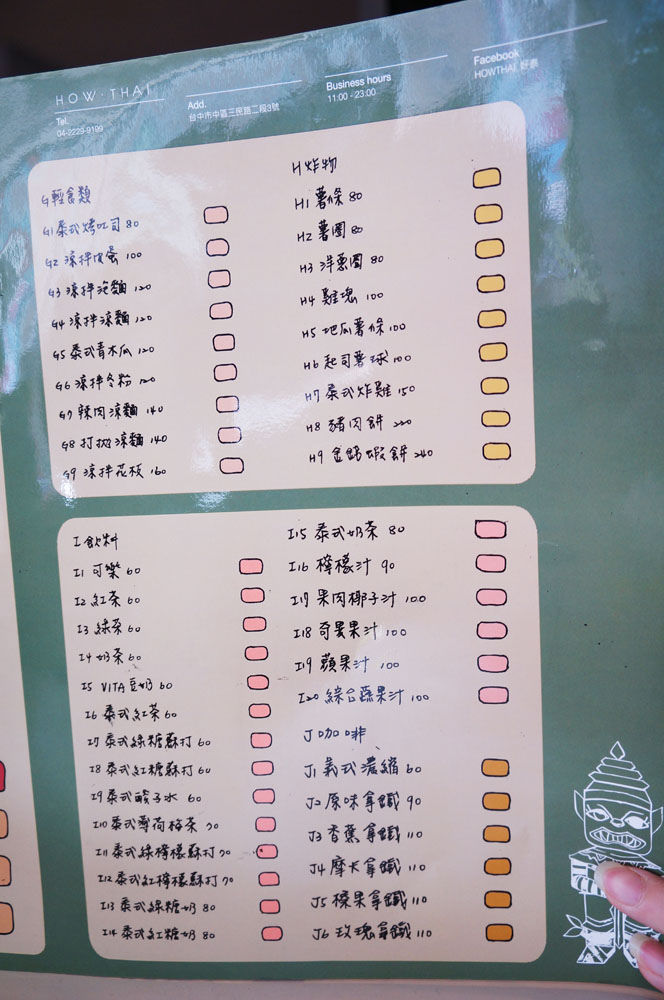 HOW · THAI
Tel.
04-2229-9199
Add.
台中市中區三民路二段3號
Business hours
11:00 - 23:00
Facebook
HOWTHAI 好泰
G 輕食類
G1 泰式烤吐司 80
G2 涼拌皮蛋 100
G3 涼拌泡麵 120
G4 涼拌涼麵 120
G5 泰式青木瓜 120
G6 涼拌冬粉 120
G7 辣肉涼麵 140
G8 打拋涼麵 140
G9 涼拌花枝 160
H 炸物
H1 薯條 80
H2 薯圈 80
H3 洋蔥圈 80
H4 雞塊 100
H5 地瓜薯條 100
H6 起司薯球 100
H7 泰式炸雞 150
H8 豬肉餅 220
H9 金錢蝦餅 240
I 飲料
I1 可樂 60
I2 紅茶 60
I3 綠茶 60
I4 奶茶 60
I5 VITA豆奶 60
I6 泰式紅茶 60
I7 泰式綠糖蘇打 60
I8 泰式紅糖蘇打 60
I9 泰式酸子水 60
I10 泰式薄荷梅茶 70
I11 泰式綠檸檬蘇打 70
I12 泰式紅檸檬蘇打 70
I13 泰式綠糖奶 80
I14 泰式紅糖奶 80
I15 泰式奶茶 80
I16 檸檬汁 90
I17 果肉椰子汁 100
I18 奇異果汁 100
I19 蘋果汁 100
I20 綜合蔬果汁 100
J 咖啡
J1 義式濃縮 60
J2 原味拿鐵 90
J3 香蕉拿鐵 110
J4 摩卡拿鐵 110
J5 榛果拿鐵 110
J6 玫瑰拿鐵 110